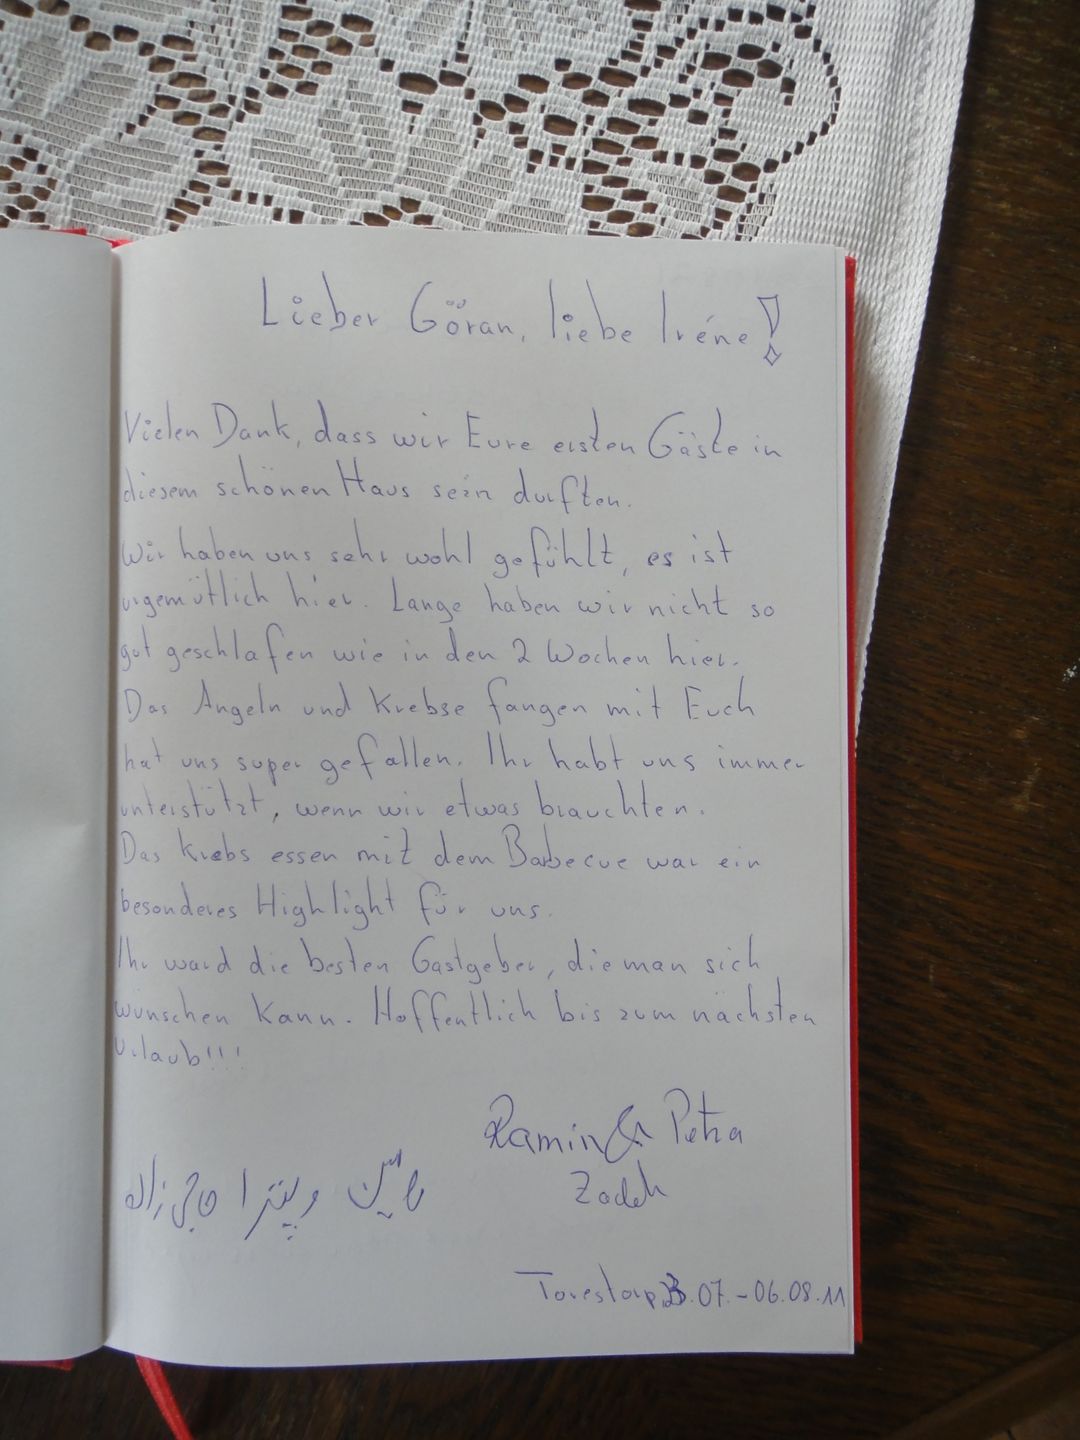 Lieber Göran, liebe Iréne!
Vielen Dank, dass wir Eure ersten Gäste in
diesem schönen Haus sein durften.
Wir haben uns sehr wohl gefühlt, es ist
urgemütlich hier. Lange haben wir nicht so
gut geschlafen wie in den 2 Wochen hier.
Das Angeln und Krebse fangen mit Euch
hat uns super gefallen. Ihr habt uns immer
unterstützt, wenn wir etwas brauchten.
Das Krebs essen mit dem Babecue war ein
besonderes Highlight für uns.
Ihr ward die besten Gastgeber, die man sich
wünschen kann. Hoffentlich bis zum nächsten
Urlaub!!!
Ramin & Petra
Zadeh
رامین و پترا حاجی زاده
Torestorp, 23.07.-06.08.11